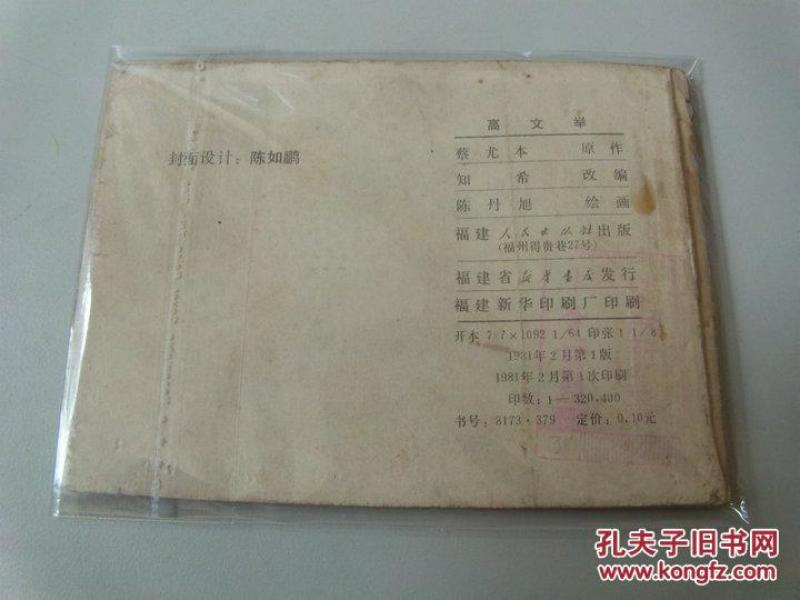 封面设计：陈如鹏
高文举
蔡尤本 原作
知希 改编
陈丹旭 绘画
福建人民出版社出版
（福州得贵巷27号）
福建省新华书店发行
福建新华印刷厂印刷
开本 787×1092 1/64 印张1 1/8
1981年2月第1版
1981年2月第1次印刷
印数：1—320,400
书号：8173·379 定价：0.10元
孔子旧书网
www.kongfz.com